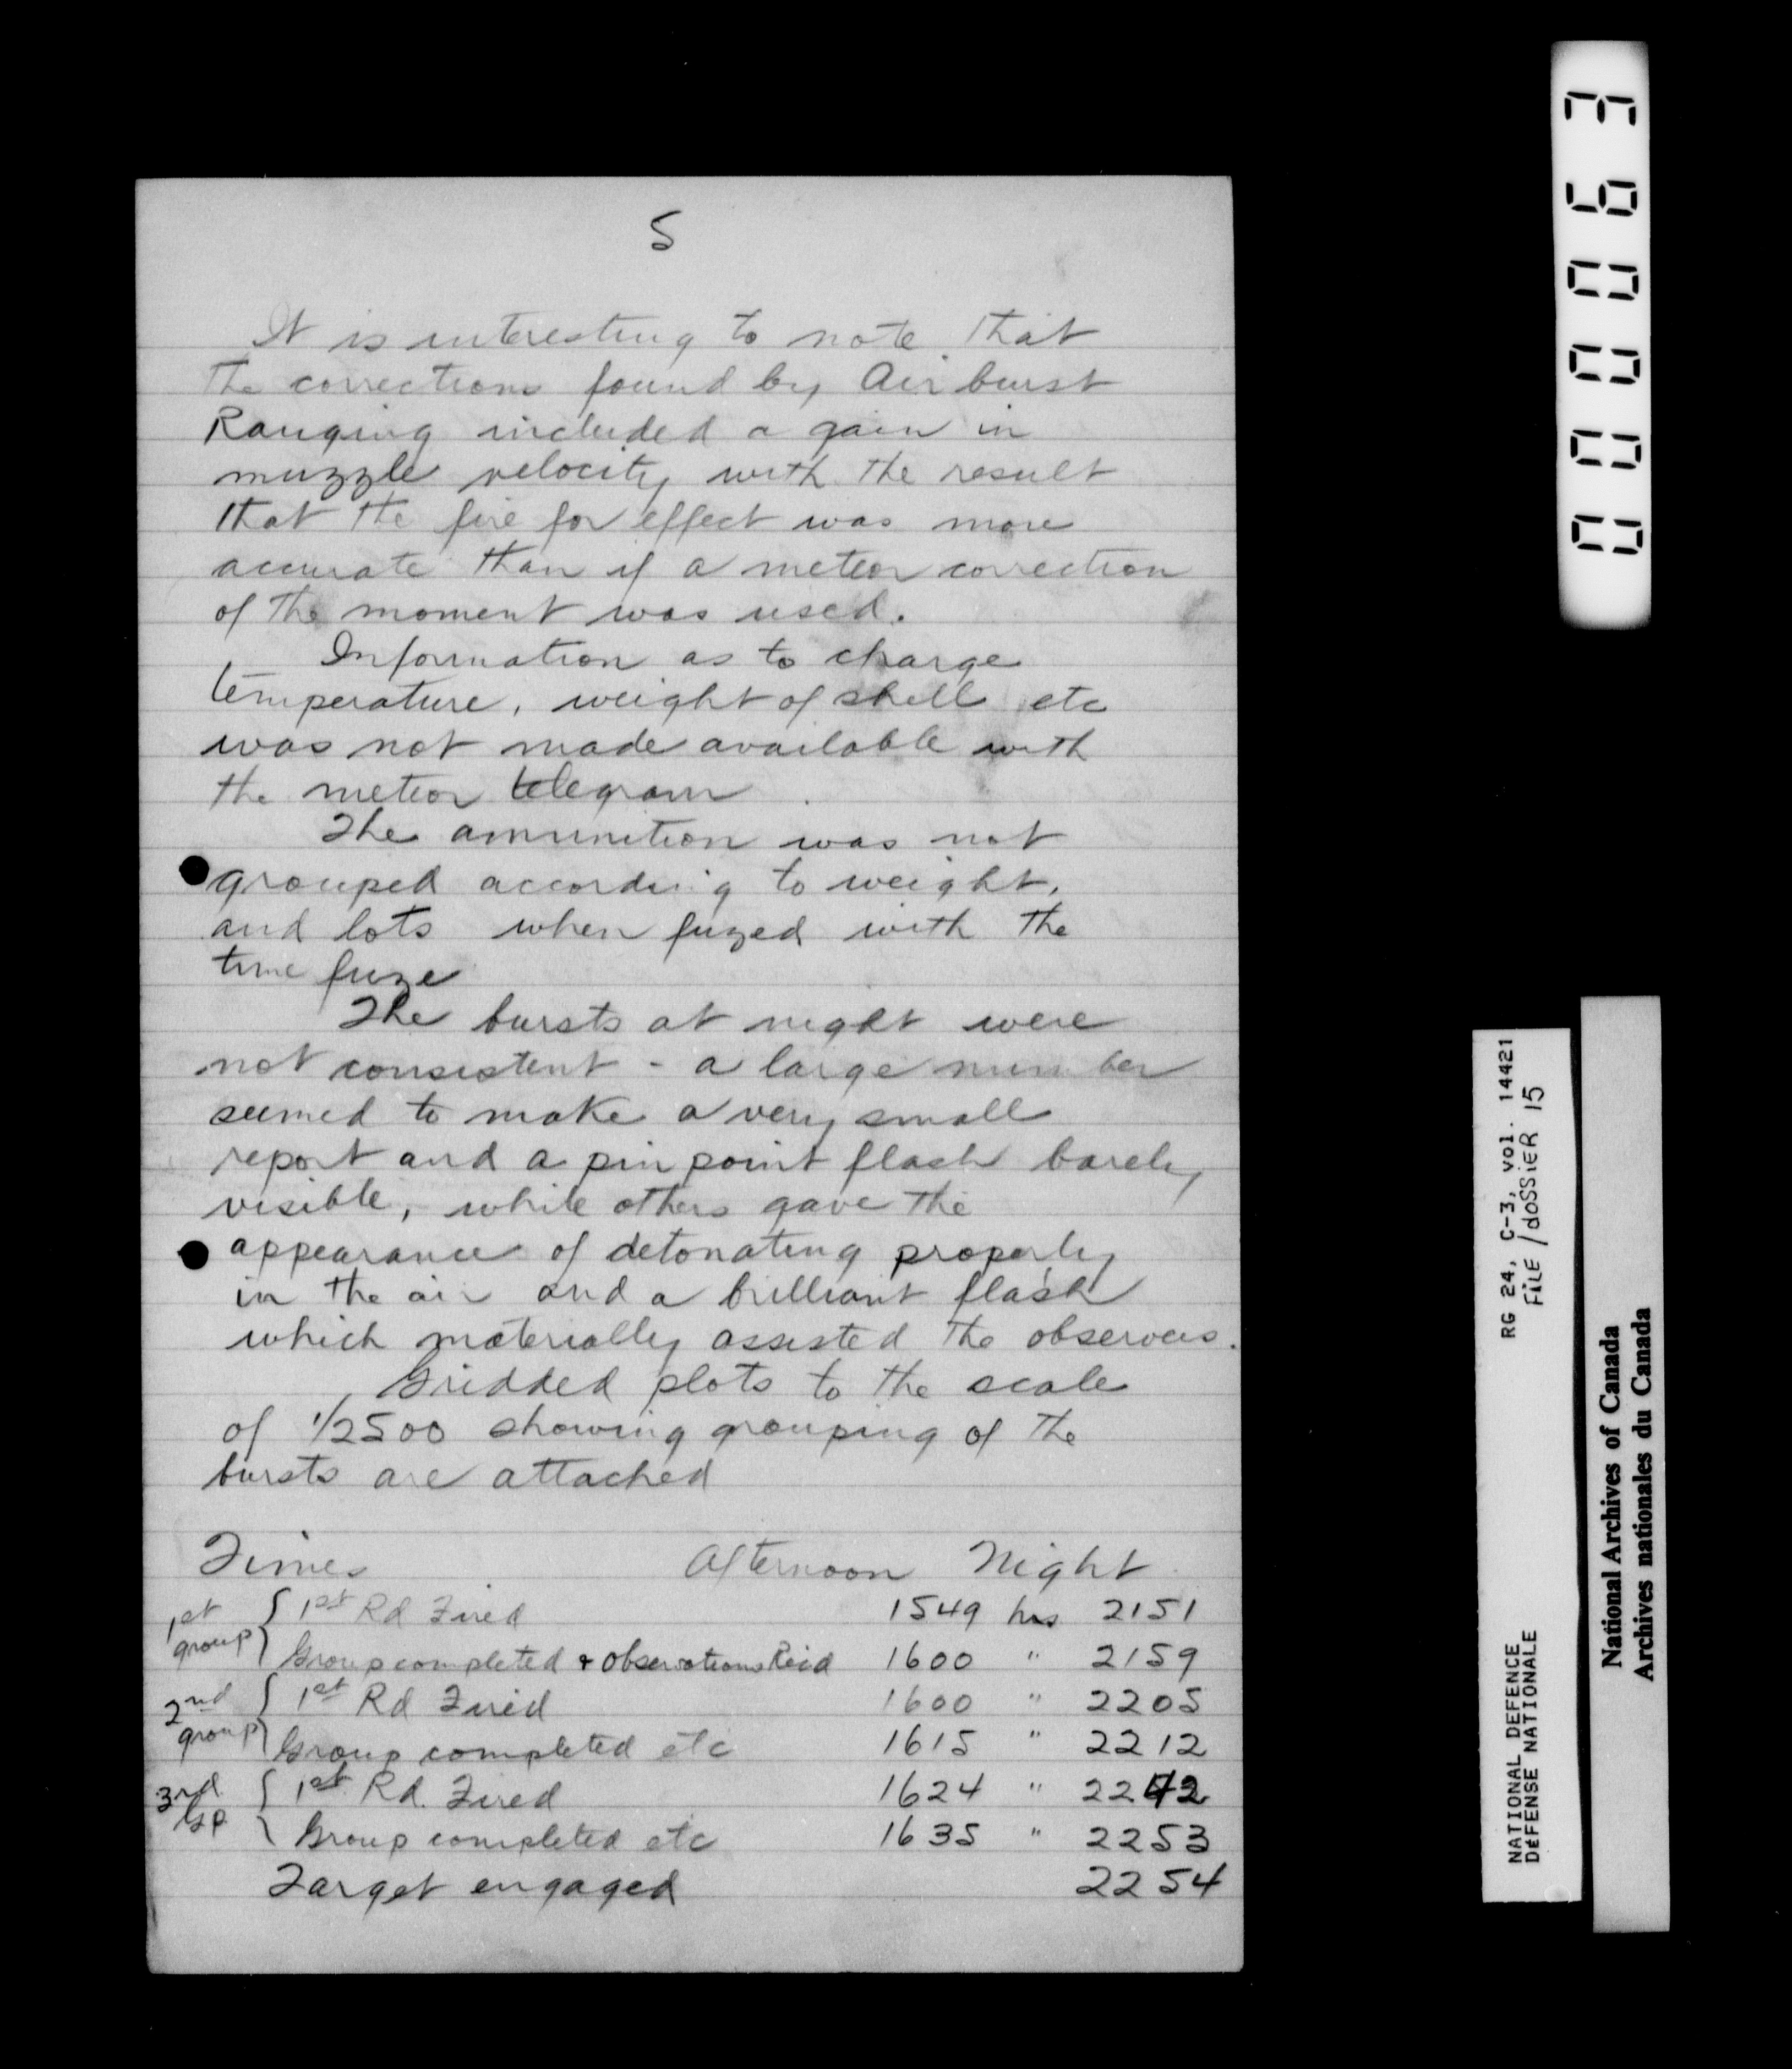 5
It is interesting to note that
the corrections found by Air burst
Ranging included a gain in
muzzle velocity with the result
that the fire for effect was more
accurate than if a meteor correction
of the moment was used.
Information as to charge
temperature, weight of shell etc
was not made available with
the meteor telegram.
The amunition was not
grouped according to weight,
and lots when fuzed with the
time fuze
The bursts at night were
not consistent - a large number
seemed to make a very small
report and a pin point flash barely
visible, while others gave the
appearance of detonating properly
in the air and a brilliant flash
which materially assisted the observers.
Gridded plots to the scale
of 1/2500 showing grouping of the
bursts are attached
Times Afternoon Night
1st group { 1st Rd Fired 1549 hrs 2151
Group completed & observations Recd 1600 " 2159
2nd group { 1st Rd Fired 1600 " 2205
Group completed etc 1615 " 2212
3rd Gp { 1st Rd. Fired 1624 " 2242
Group completed etc 1635 " 2253
Target engaged 2254
000063
RG 24, C-3, vol. 14421
FILE/dOSSiER 15
NATIONAL DEFENCE
DéFENSE NATIONALE
National Archives of Canada
Archives nationales du Canada